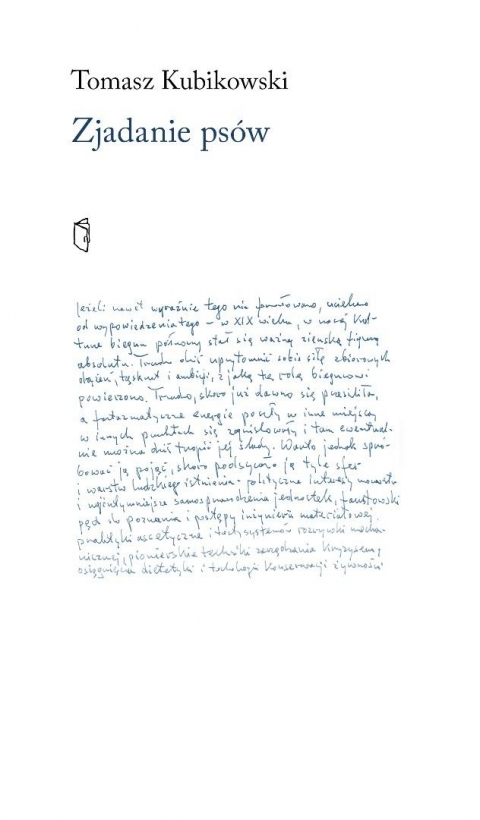 Tomasz Kubikowski
Zjadanie psów
Jeżeli nawet wyraźnie tego nie
od wypowiedzenia tego – w XIX wieku, w naszej kul-
turze biegun północny stał się ważną ziemską figurą
absolutu. Trudno dziś uprzytomnić sobie siłę zbiorowych
dążeń, tęsknot i ambicji, z jaką tę rolę biegunowi
powierzono. Trudno, skoro już dawno się przesiliła,
a fantazmatyczne energie poszły w inne miejsca,
w innych punktach się zogniskowały i tam ewentual-
nie można dziś tropić jej ślady. Warto jednak spró-
bować ją pojąć, skoro podsycało ją tyle sfer
i warstw ludzkiego istnienia: polityczne interesy mocarstw
i najintymniejsze samosprawdzenia jednostek, faustowski
pęd do poznania i postępy inżynierii materiałowej,
praktyki ascetyczne i rozrywki
pionierskie techniki zarządzania kryzysem,
osiągnięcia dietetyki i technologii konserwacji żywności